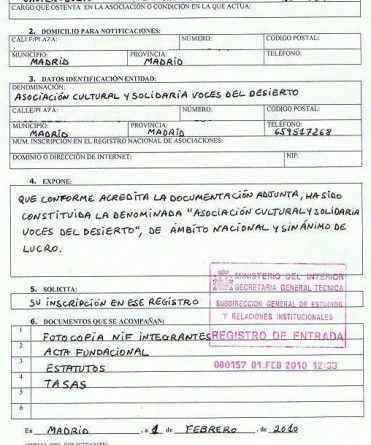 CARGO QUE OSTENTA EN LA ASOCIACIÓN O CONDICIÓN EN LA QUE ACTÚA:
2. DOMICILIO PARA NOTIFICACIONES:
CALLE/PLAZA: NÚMERO: CÓDIGO POSTAL:
MUNICIPIO: PROVINCIA: TELÉFONO:
MADRID MADRID
3. DATOS IDENTIFICACIÓN ENTIDAD:
DENOMINACIÓN:
ASOCIACIÓN CULTURAL Y SOLIDARIA VOCES DEL DESIERTO
CALLE/PLAZA: NÚMERO: CÓDIGO POSTAL:
MUNICIPIO: PROVINCIA: TELÉFONO:
MADRID MADRID 659517268
NUM. INSCRIPCIÓN EN EL REGISTRO NACIONAL DE ASOCIACIONES:
DOMINIO O DIRECCIÓN DE INTERNET: NIF:
4. EXPONE:
QUE CONFORME ACREDITA LA DOCUMENTACIÓN ADJUNTA, HA SIDO
CONSTITUIDA LA DENOMINADA "ASOCIACIÓN CULTURAL Y SOLIDARIA
VOCES DEL DESIERTO", DE ÁMBITO NACIONAL Y SIN ÁNIMO DE
LUCRO.
MINISTERIO DEL INTERIOR
SECRETARIA GENERAL TECNICA
5. SOLICITA:
SU INSCRIPCIÓN EN ESE REGISTRO
SUBDIRECCION GENERAL DE ESTUDIOS
Y RELACIONES INSTITUCIONALES
6. DOCUMENTOS QUE SE ACOMPAÑAN:
1 FOTOCOPIA NIF INTEGRANTES
REGISTRO DE ENTRADA
2 ACTA FUNDACIONAL
3 ESTATUTOS
000157 01.FEB 2010 12:03
4 TASAS
5
6
En MADRID , a 1 de FEBRERO , de 2010
(FIRMA DEL SOLICITANTE)